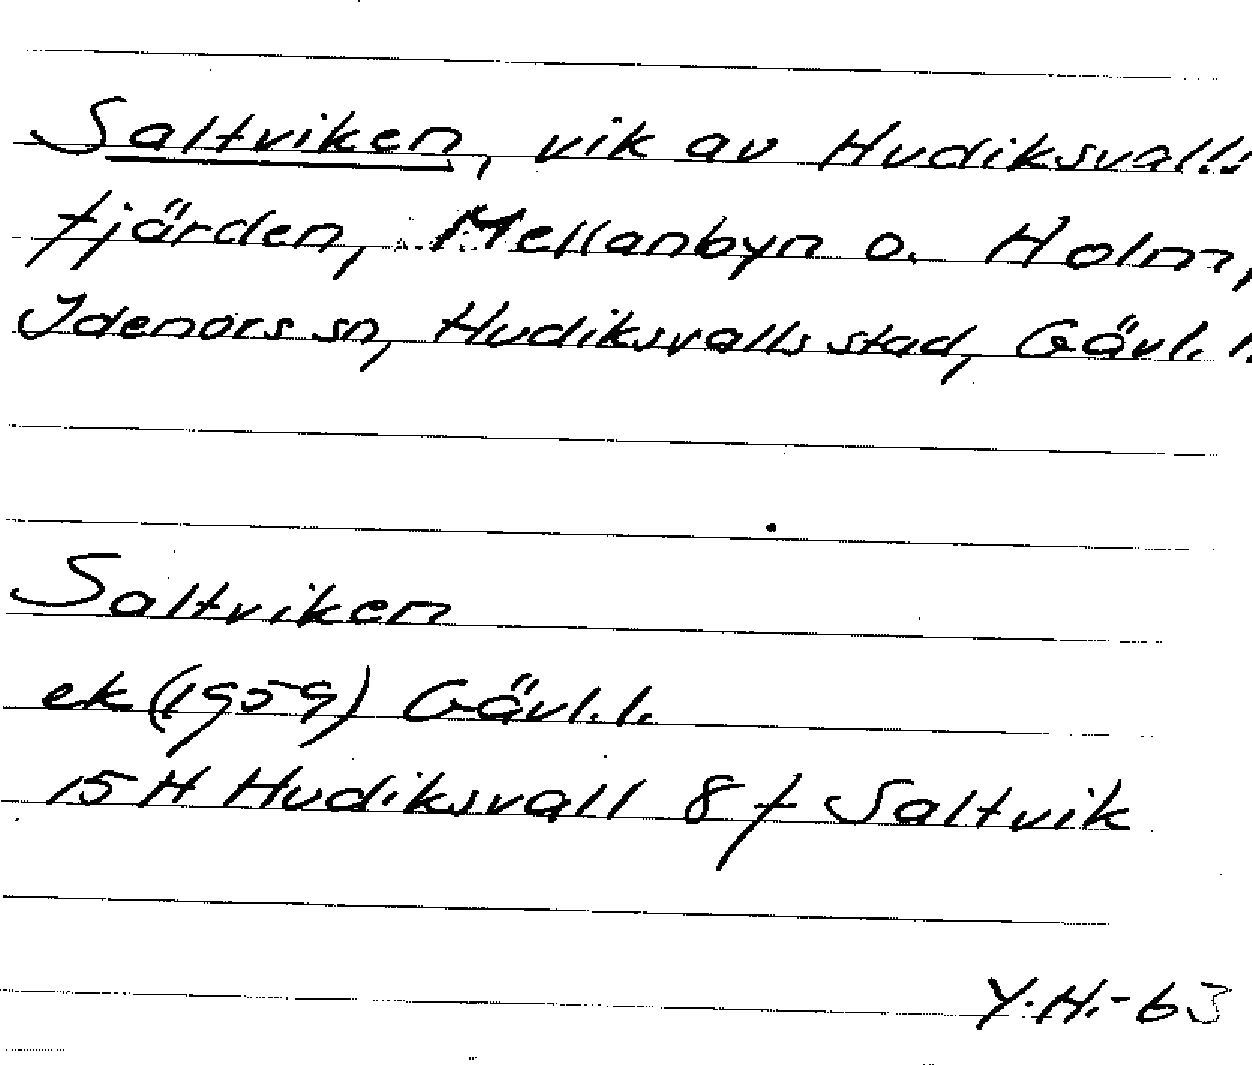 Saltviken, vik av Hudiksvalls
fjärden, Mellanbyn o. Holm,
Idenors sn, Hudiksvalls stad, Gävl. l.
Saltviken
ek (1959) Gävl. l.
15 H Hudiksvall 8 f Saltvik
Y.H.-63